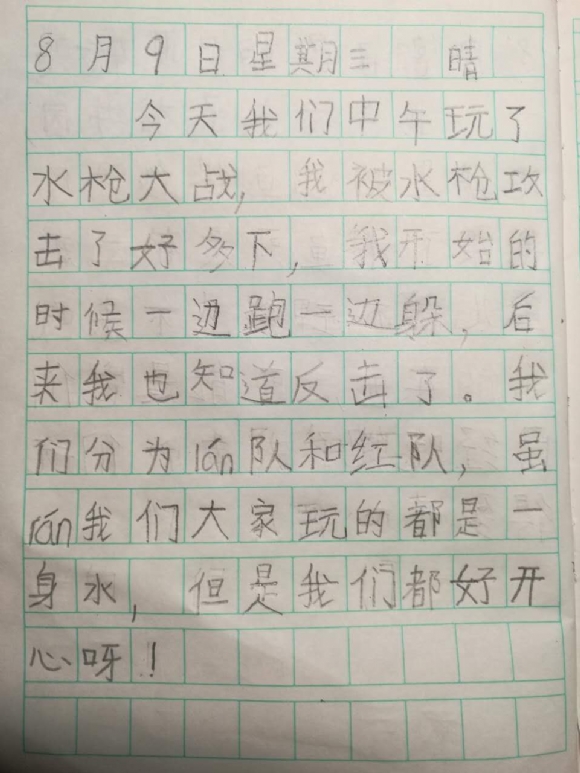 8月9日星期三 晴
今天我们中午玩了
水枪大战，我被水枪攻
击了好多下，我开始的
时候一边跑一边躲，后
来我也知道反击了。我
们分为lán队和红队，虽
rán我们大家玩的都是一
身水，但是我们都好开
心呀！